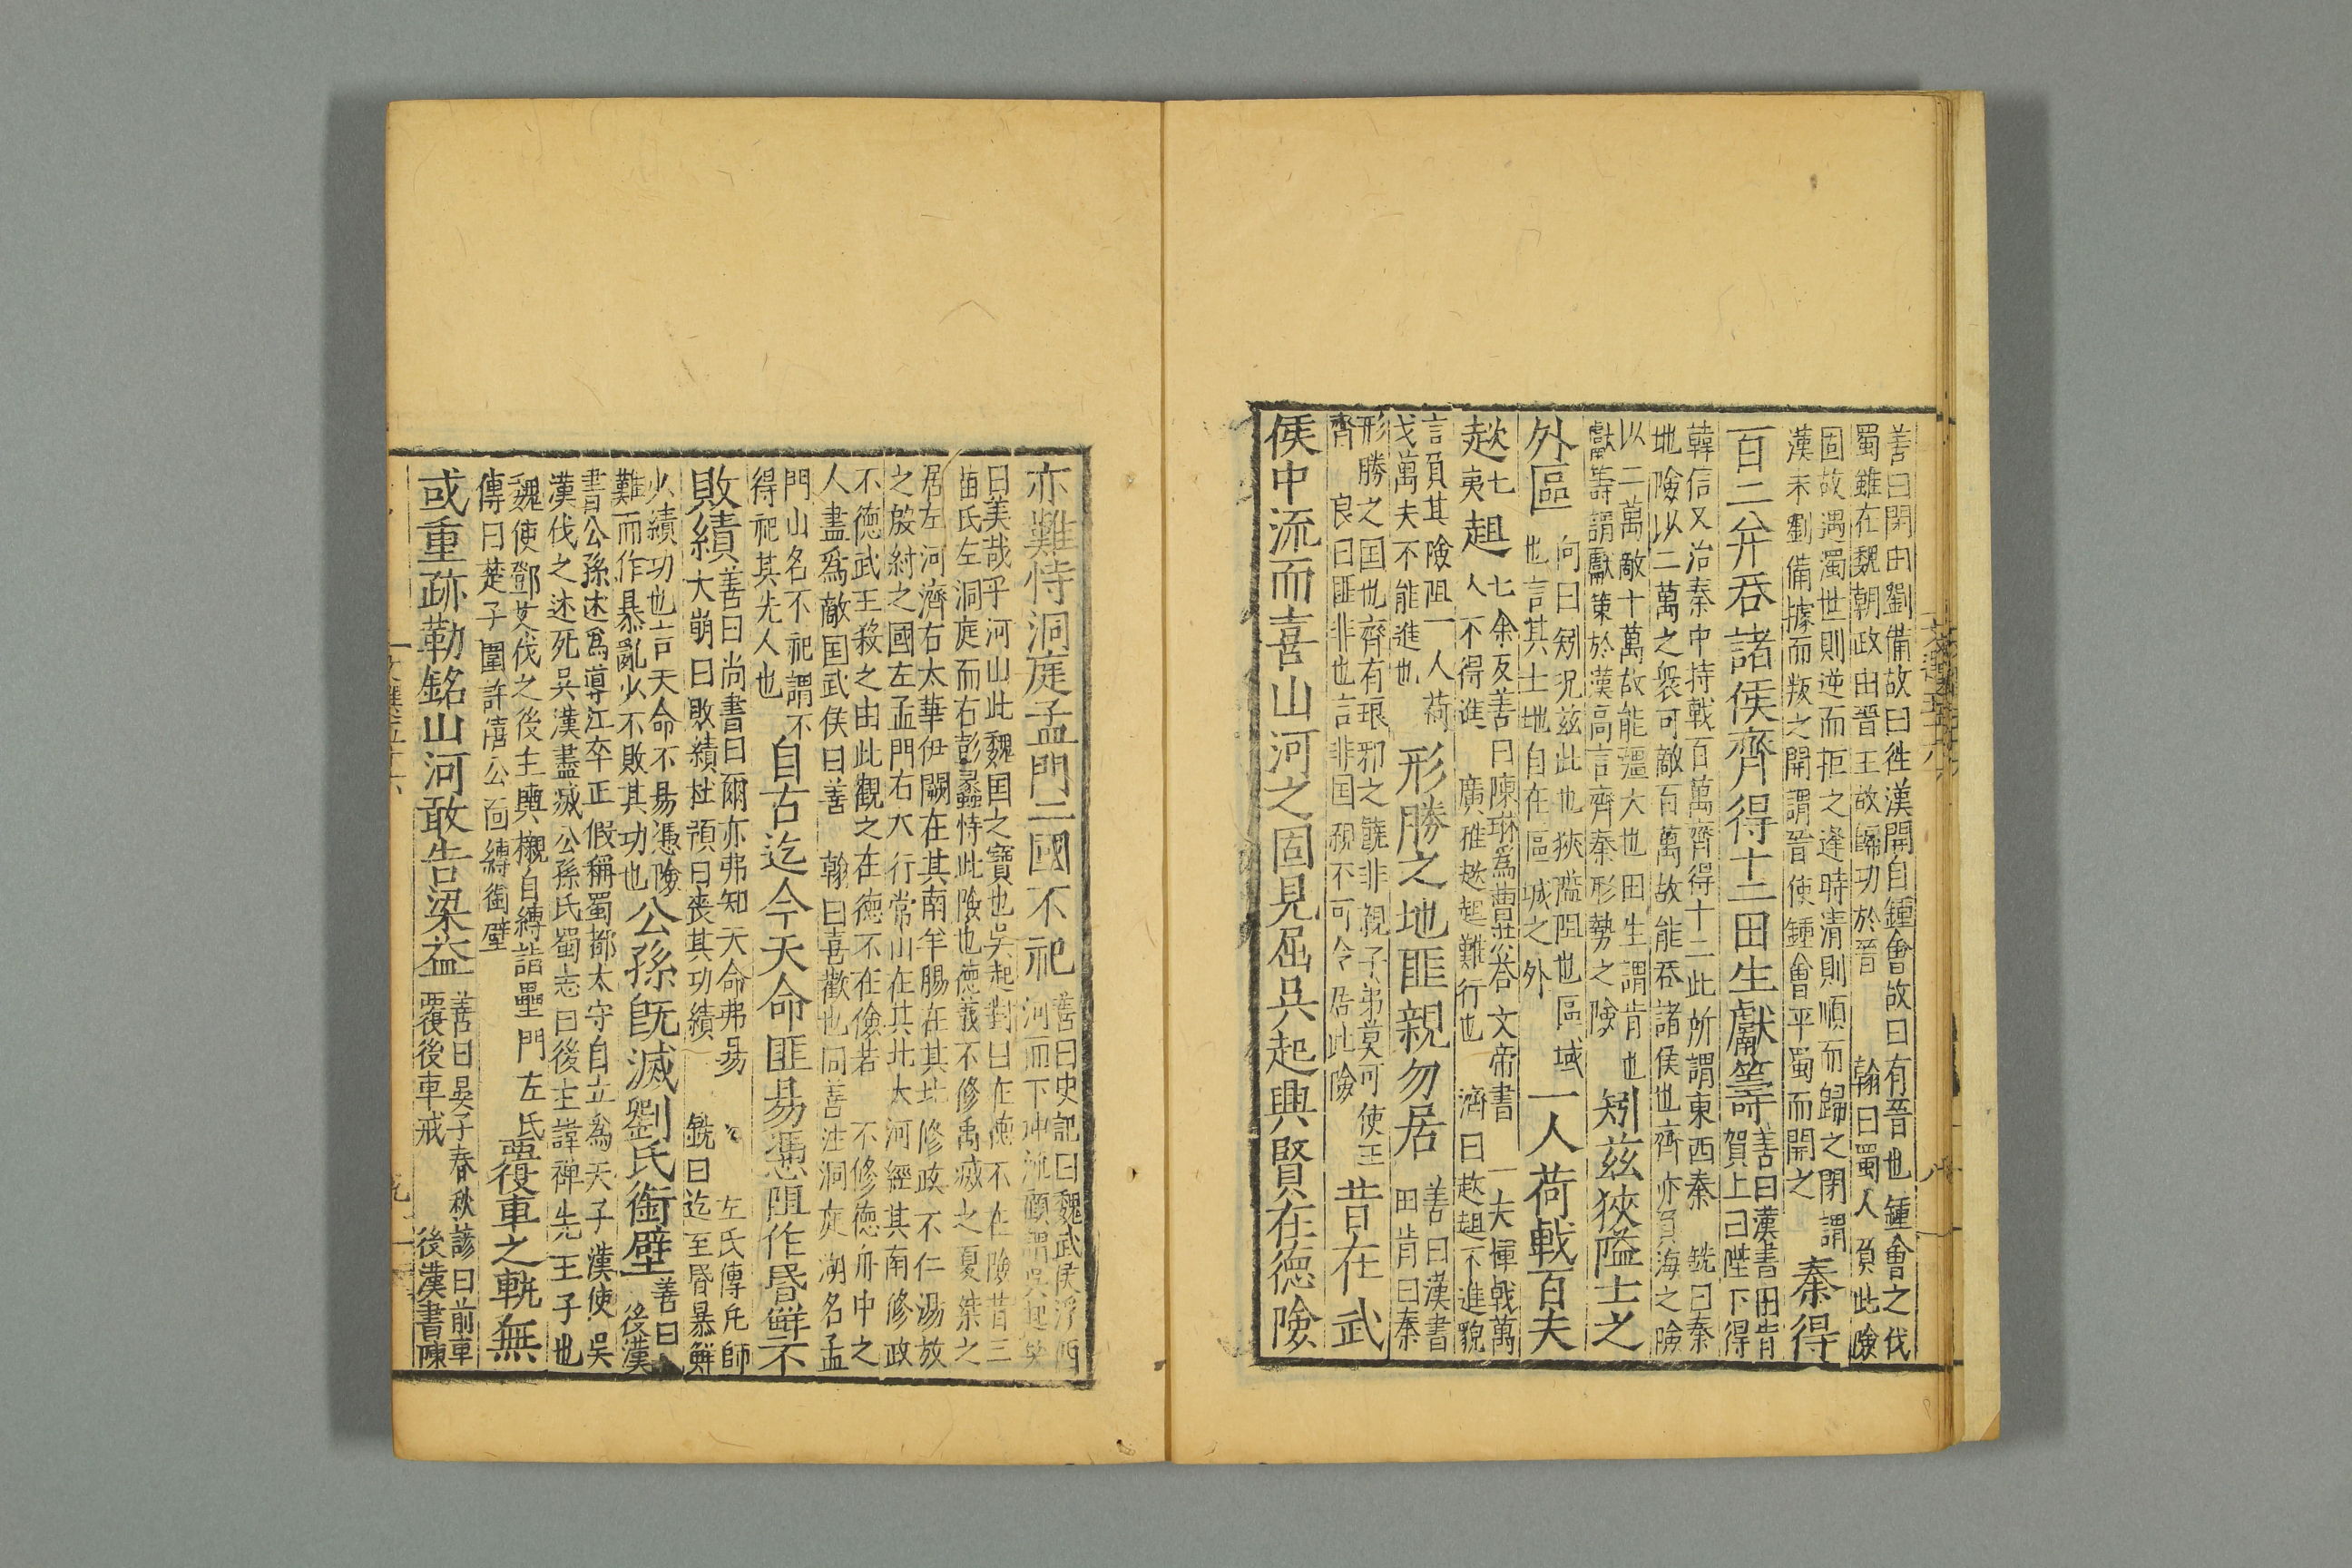 善曰閉由劉備故曰徃漢開自鍾會故曰有晉也鍾會之伐
蜀雖在魏朝政由晉王故歸功於晉 翰曰蜀人負此險
固故遇濁世則逆而拒之逢時清則順而歸之閉謂
漢末劉備據而叛之開謂晉使鍾會平蜀而開之
秦得
百二并吞諸侯齊得十二田生獻籌
善曰漢書田肯
賀上曰陛下得
韓信又治秦中持戟百萬齊得十二此所謂東西秦 銑曰秦
地險以二萬之衆可敵百萬故能吞諸侯也齊亦負海之險
以二萬敵十萬故能彊大也田生謂肯也
獻籌謂獻策於漢高言齊秦形勢之險
矧茲狹隘土之
外區
向曰矧況茲此也狹隘阻也區域
也言其土地自在區域之外
一人荷戟百夫
趑
七
夷
趄
七余反善曰陳琳為曹洪荅文帝書 一夫揮戟萬
人不得進 廣雅趑趄難行也 濟曰趑趄不進貌
言負其險阻一人荷
戈萬夫不能進也
形勝之地匪親勿居
善曰漢書
田肯曰秦
形勝之国也齊有琅邪之饒非親子弟莫可使王
齊 良曰匪非也言非国親不可令居此險
昔在武
侯中流而喜山河之固見屈吳起興賢在德險
亦難恃洞庭孟門二國不祀
善曰史記曰魏武侯浮西
河而下中流顧謂吳起
曰美哉乎河山此魏国之寶也吳起對曰在德不在險昔三
苗氏左洞庭而右彭蠡恃此險也德義不修禹滅之夏桀之
居左河濟右太華伊闕在其南羊腸在其北修政不仁湯放
之放紂之國左孟門右太行常山在其北大河經其南修政
不德武王殺之由此觀之在德不在險若 不修德舟中之
人盡為敵国武侯曰善 翰曰喜歡也同善注洞庭湖名孟
門山名不祀謂不
得祀其先人也
自古迄今天命匪易憑阻作昏鮮不
敗績
善曰尚書曰爾亦弗知天命弗易 左氏傳凡師
大崩曰敗績杜預曰喪其功績 銑曰迄至昏暴鮮
少績功也言天命不易憑險
難而作暴亂少不敗其功也
公孫既滅劉氏銜璧
善曰
後漢
書公孫述為導江卒正假稱蜀都太守自立為天子漢使吳
漢伐之述死吳漢盡滅公孫氏蜀志曰後主諱禪先王子也
魏使鄧艾伐之後主輿櫬自縛詣壘門左氏
傳曰楚子圍許僖公面縛銜璧
覆車之軌無
或重跡勒銘山河敢告梁益
善曰晏子春秋諺曰前車
覆後車戒 後漢書陳